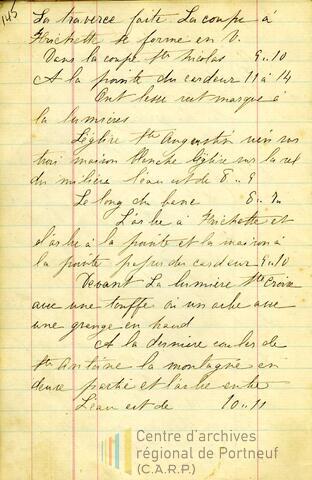 145
La traverce faite La coupe à
Frichette se forme en V.
Dans la coupe Ste Nicolas 9..10
A la pointe du cardeur 11 à 14
Ont lesse vet marque à
la lumières
L'église Ste Augustin vien sur
troi maison blenche Eglise sur la rel
du milière l'eau est de 8..9
Le long du banc 8..9..
L'arbe à Frichette et
l'arbe à la pointe et la maison à
la pointe du cardeur 9..10
Devant La lumière Ste Croix
avec une touffe ou un arbe avec
une grange en haud
A la dernière coulée de
Ste Antoine la montagne en
deux partie et l'arbe entre
L'eau est de 10..11
Centre d'archives
régional de Portneuf
(C.A.R.P.)